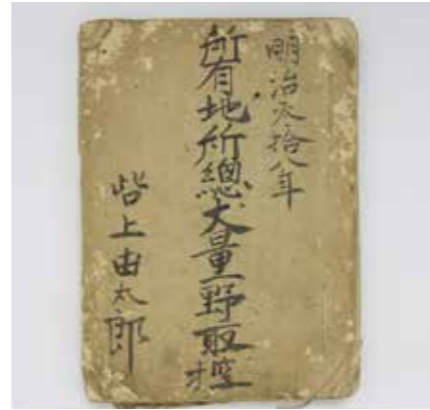 明治参拾八年
所有地所總丈量野取控
呰上由太郎